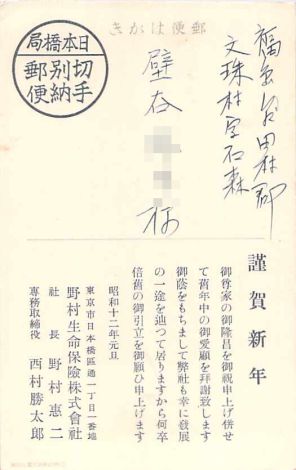 郵便はがき
日本橋局
切手
別納
郵便
福島県田村郡
文珠村字石森
壁谷
様
謹賀新年
御尊家の御隆昌を御祝申上げ併せ
て舊年中の御愛顧を拜謝致します
御蔭をもちまして弊社も幸に發展
の一途を辿つて居りますから何卒
倍舊の御引立を御願ひ申上げます
昭和十二年元旦
東京市日本橋區通一丁目一番地
野村生命保險株式會社
社長 野村惠二
專務取締役 西村勝太郎